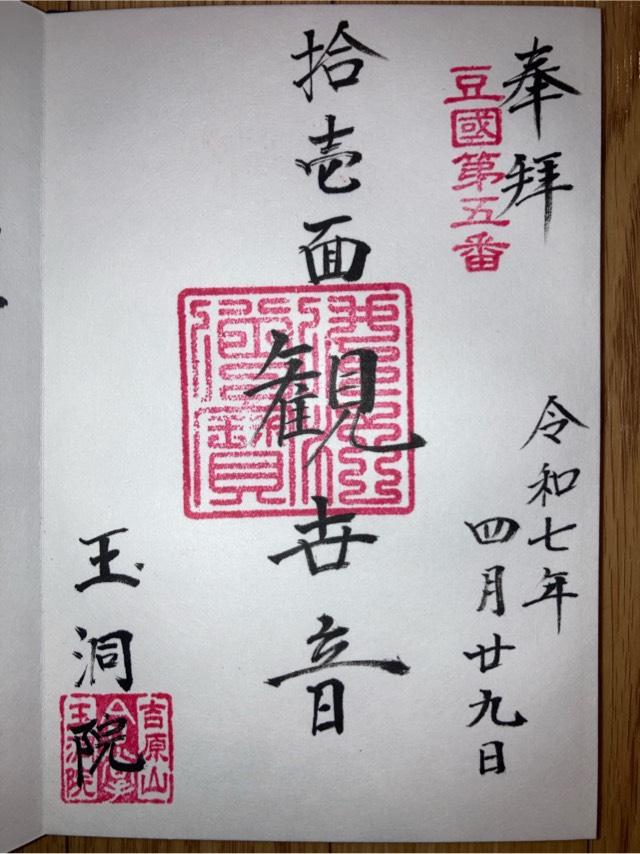 奉拝
豆國第五番
令和七年
四月廿九日
拾壱面観世音
佛法僧寳
玉洞院
吉原山
玉洞院